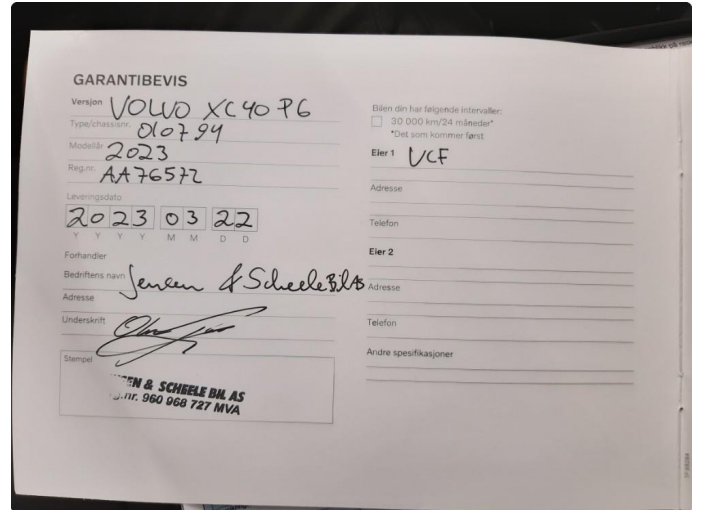 GARANTIBEVIS
Versjon VOLVO XC40 P6
Type/chassisnr. 010794
Modellår 2023
Reg.nr. AA76572
Leveringsdato
2023 03 22
Y Y Y Y M M D D
Forhandler
Bedriftens navn Jensen & Scheele Bil AS
Adresse
Underskrift
Stempel
SEN & SCHEELE BIL AS
.nr. 960 968 727 MVA
Bilen din har følgende intervaller:
30 000 km/24 måneder*
*Det som kommer først
Eier 1 VCF
Adresse
Telefon
Eier 2
Adresse
Telefon
Andre spesifikasjoner